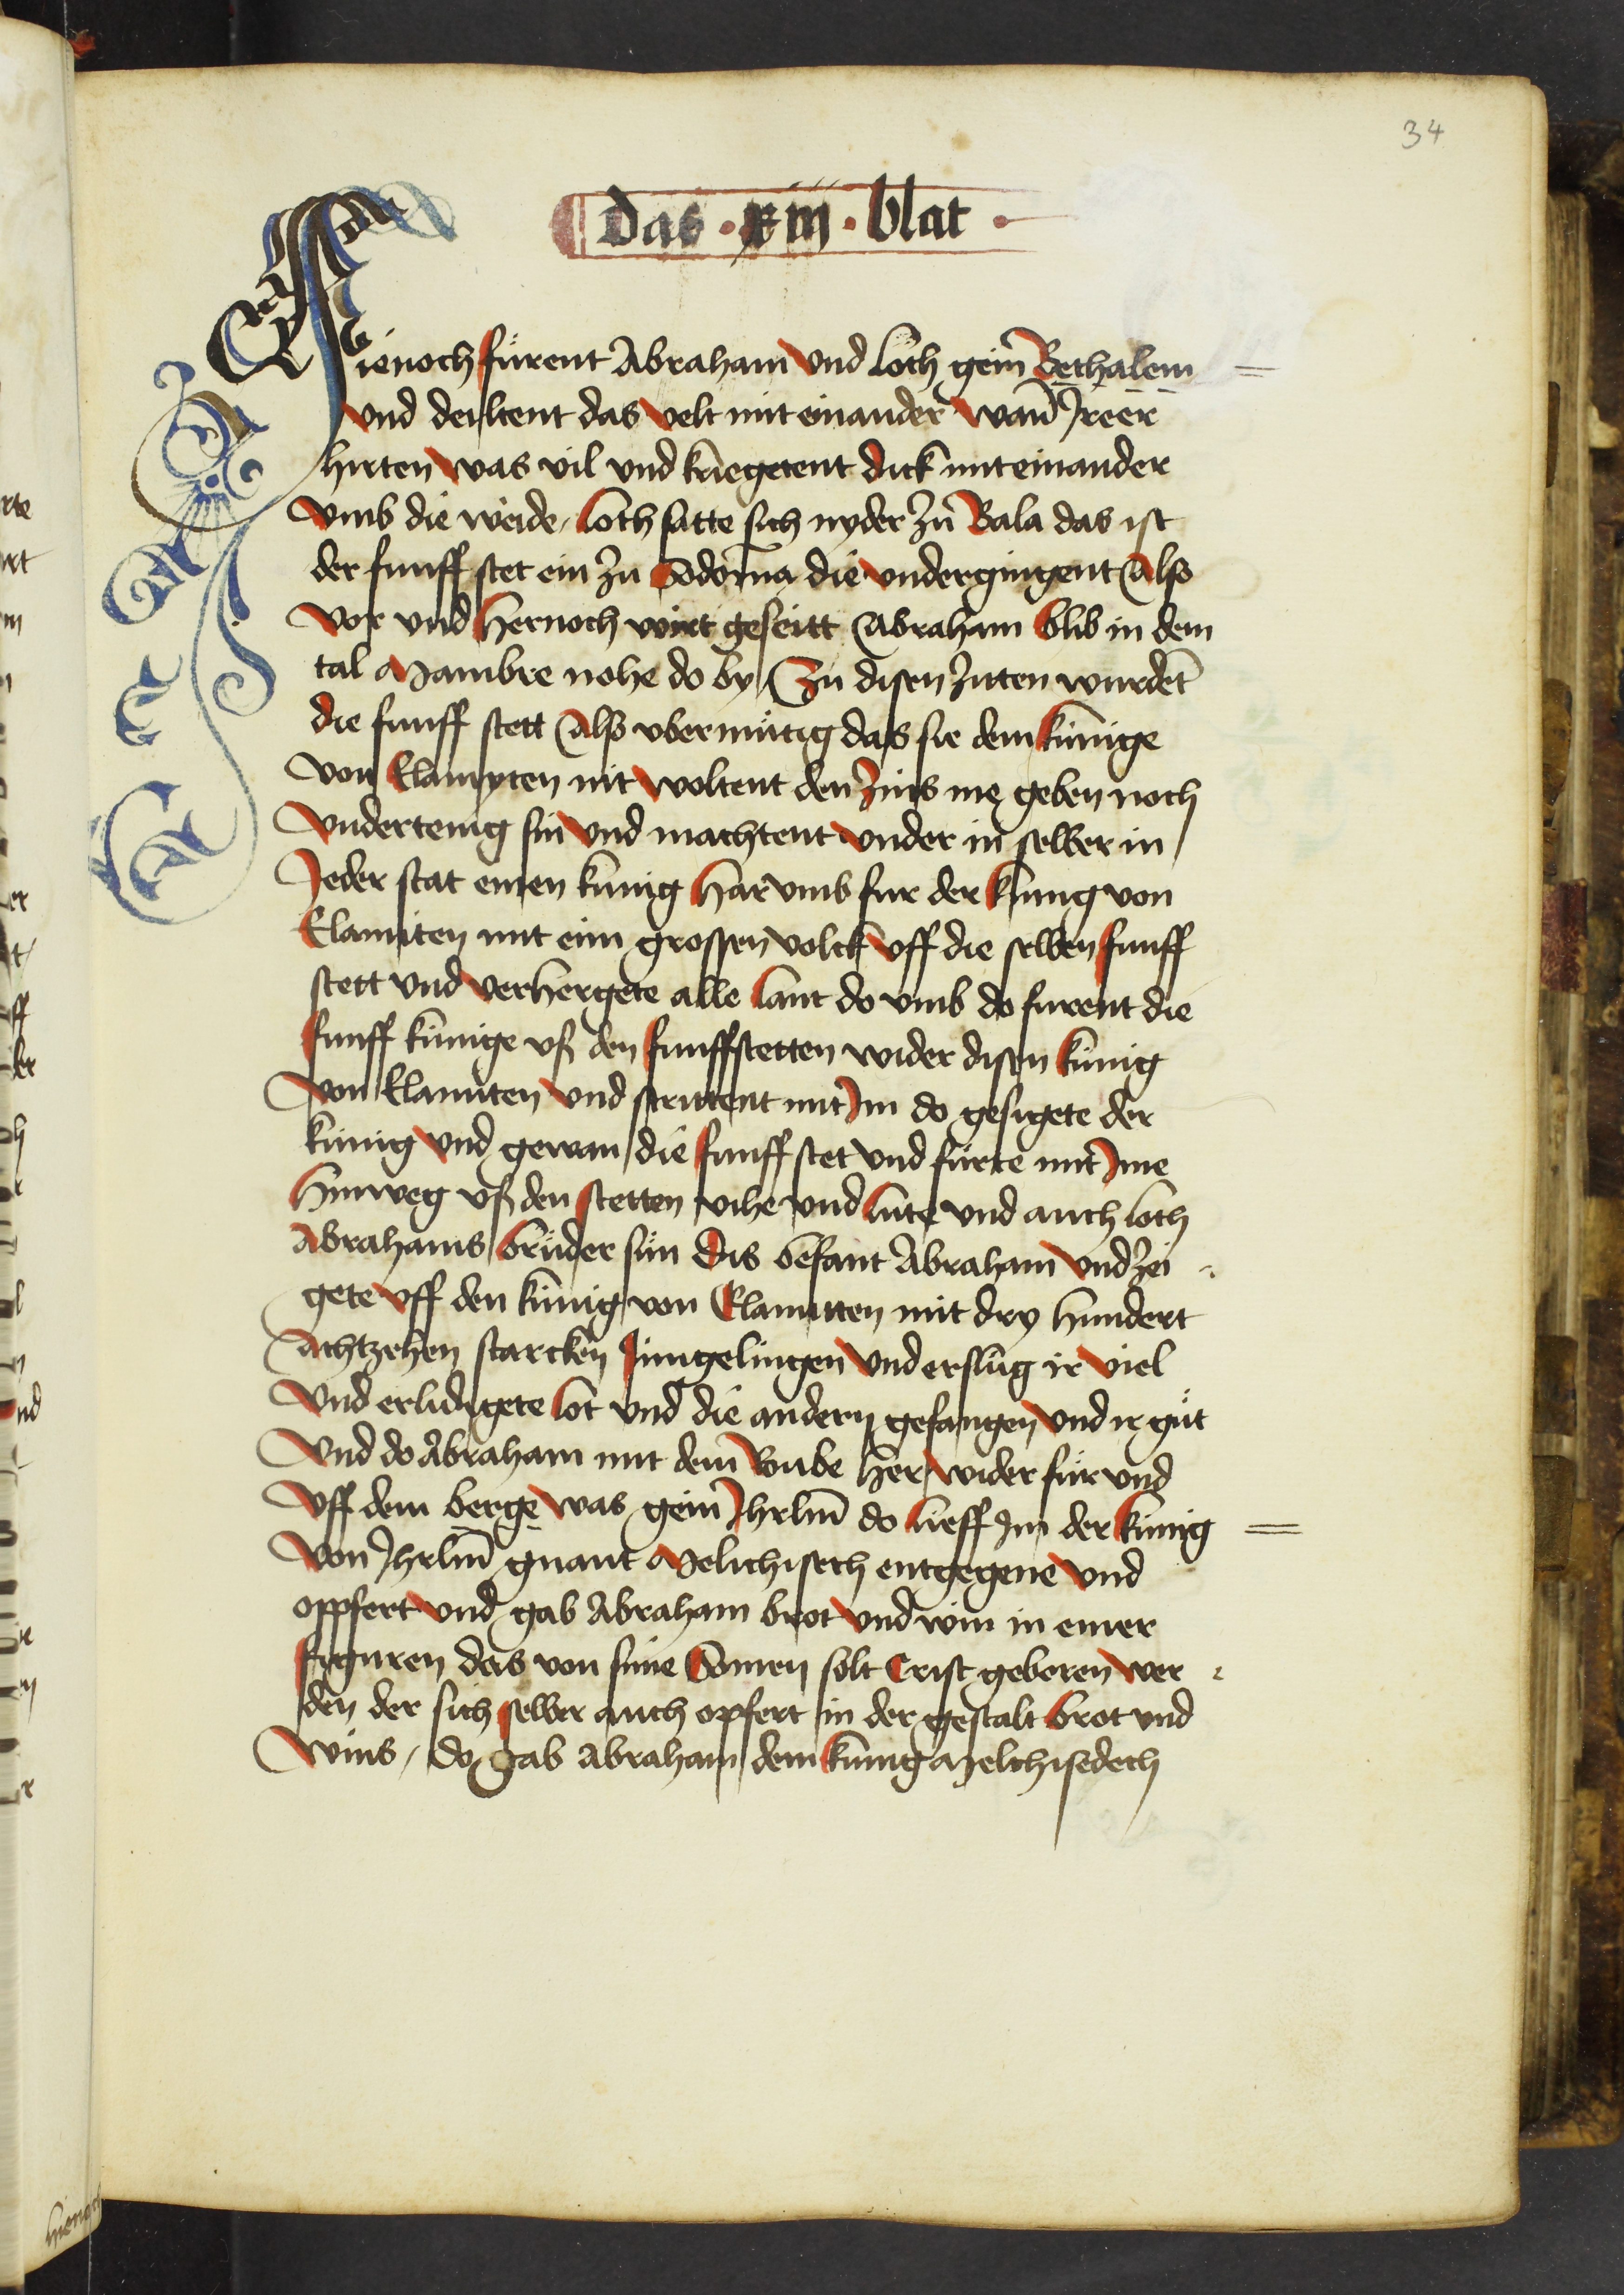 34
Das · xiii · blat ·
Hienoch fürent Abraham vnd loth gein Bethalem
vnd deiltent das velt mit einander wan Jreer
hirten was vil vnd kriegetent dick mit einander
vmb die weide / loth satte sich nyder zü Bala das ist
der funff stet ein zu Sodoma die vndergingent Also
vor vnd hernoch wirt geseitt Abraham blib in dem
tal Mambre nohe do by / Zü disen ziten wurdet̄
die funff stett Also vbermütig das sie dem künige
von Elamyten nit woltent den zins me geben noch
vndertenig sin vnd machtent vnder in selber in
Jeder stat einen künig har vmb fur der künig von
Elamiten mit eim grossen volck vff die selben funff
stett vnd verhergete alle lant do vmb do furent die
funff künige vß den funffstetten wider disen künig
von Elamiten vnd strittent mit Jm do gesigete der
künig vnd gewan die funff stet vnd fürte mit Jme
hinweg vß den stetten vihe vnd lüte vnd auch loth
Abrahams brüder sün Dis befant Abraham vnd zei
gete vff den künig von Elamitten mit dry hundert
Achtzehen starcken Jungelingen vnd erslüg ir viel
vnd erlidigete lot vnd die andern gefangen vnd ir güt
Vnd do Abraham mit dem Roube her wider für vnd
Vff dem berge was gein Jhrlm̄ do lieff Jm der künig
von Jhrlm̄ gnant Melichisech entgegene vnd
oppfert vnd gab Abraham brot vnd win in einer
figuren das von sime Somen solt Crist geboren wer
den der sich selber auch opfert in der gestalt brot vnd
wins / do gab Abraham dem künig Melchisedech
hienoch